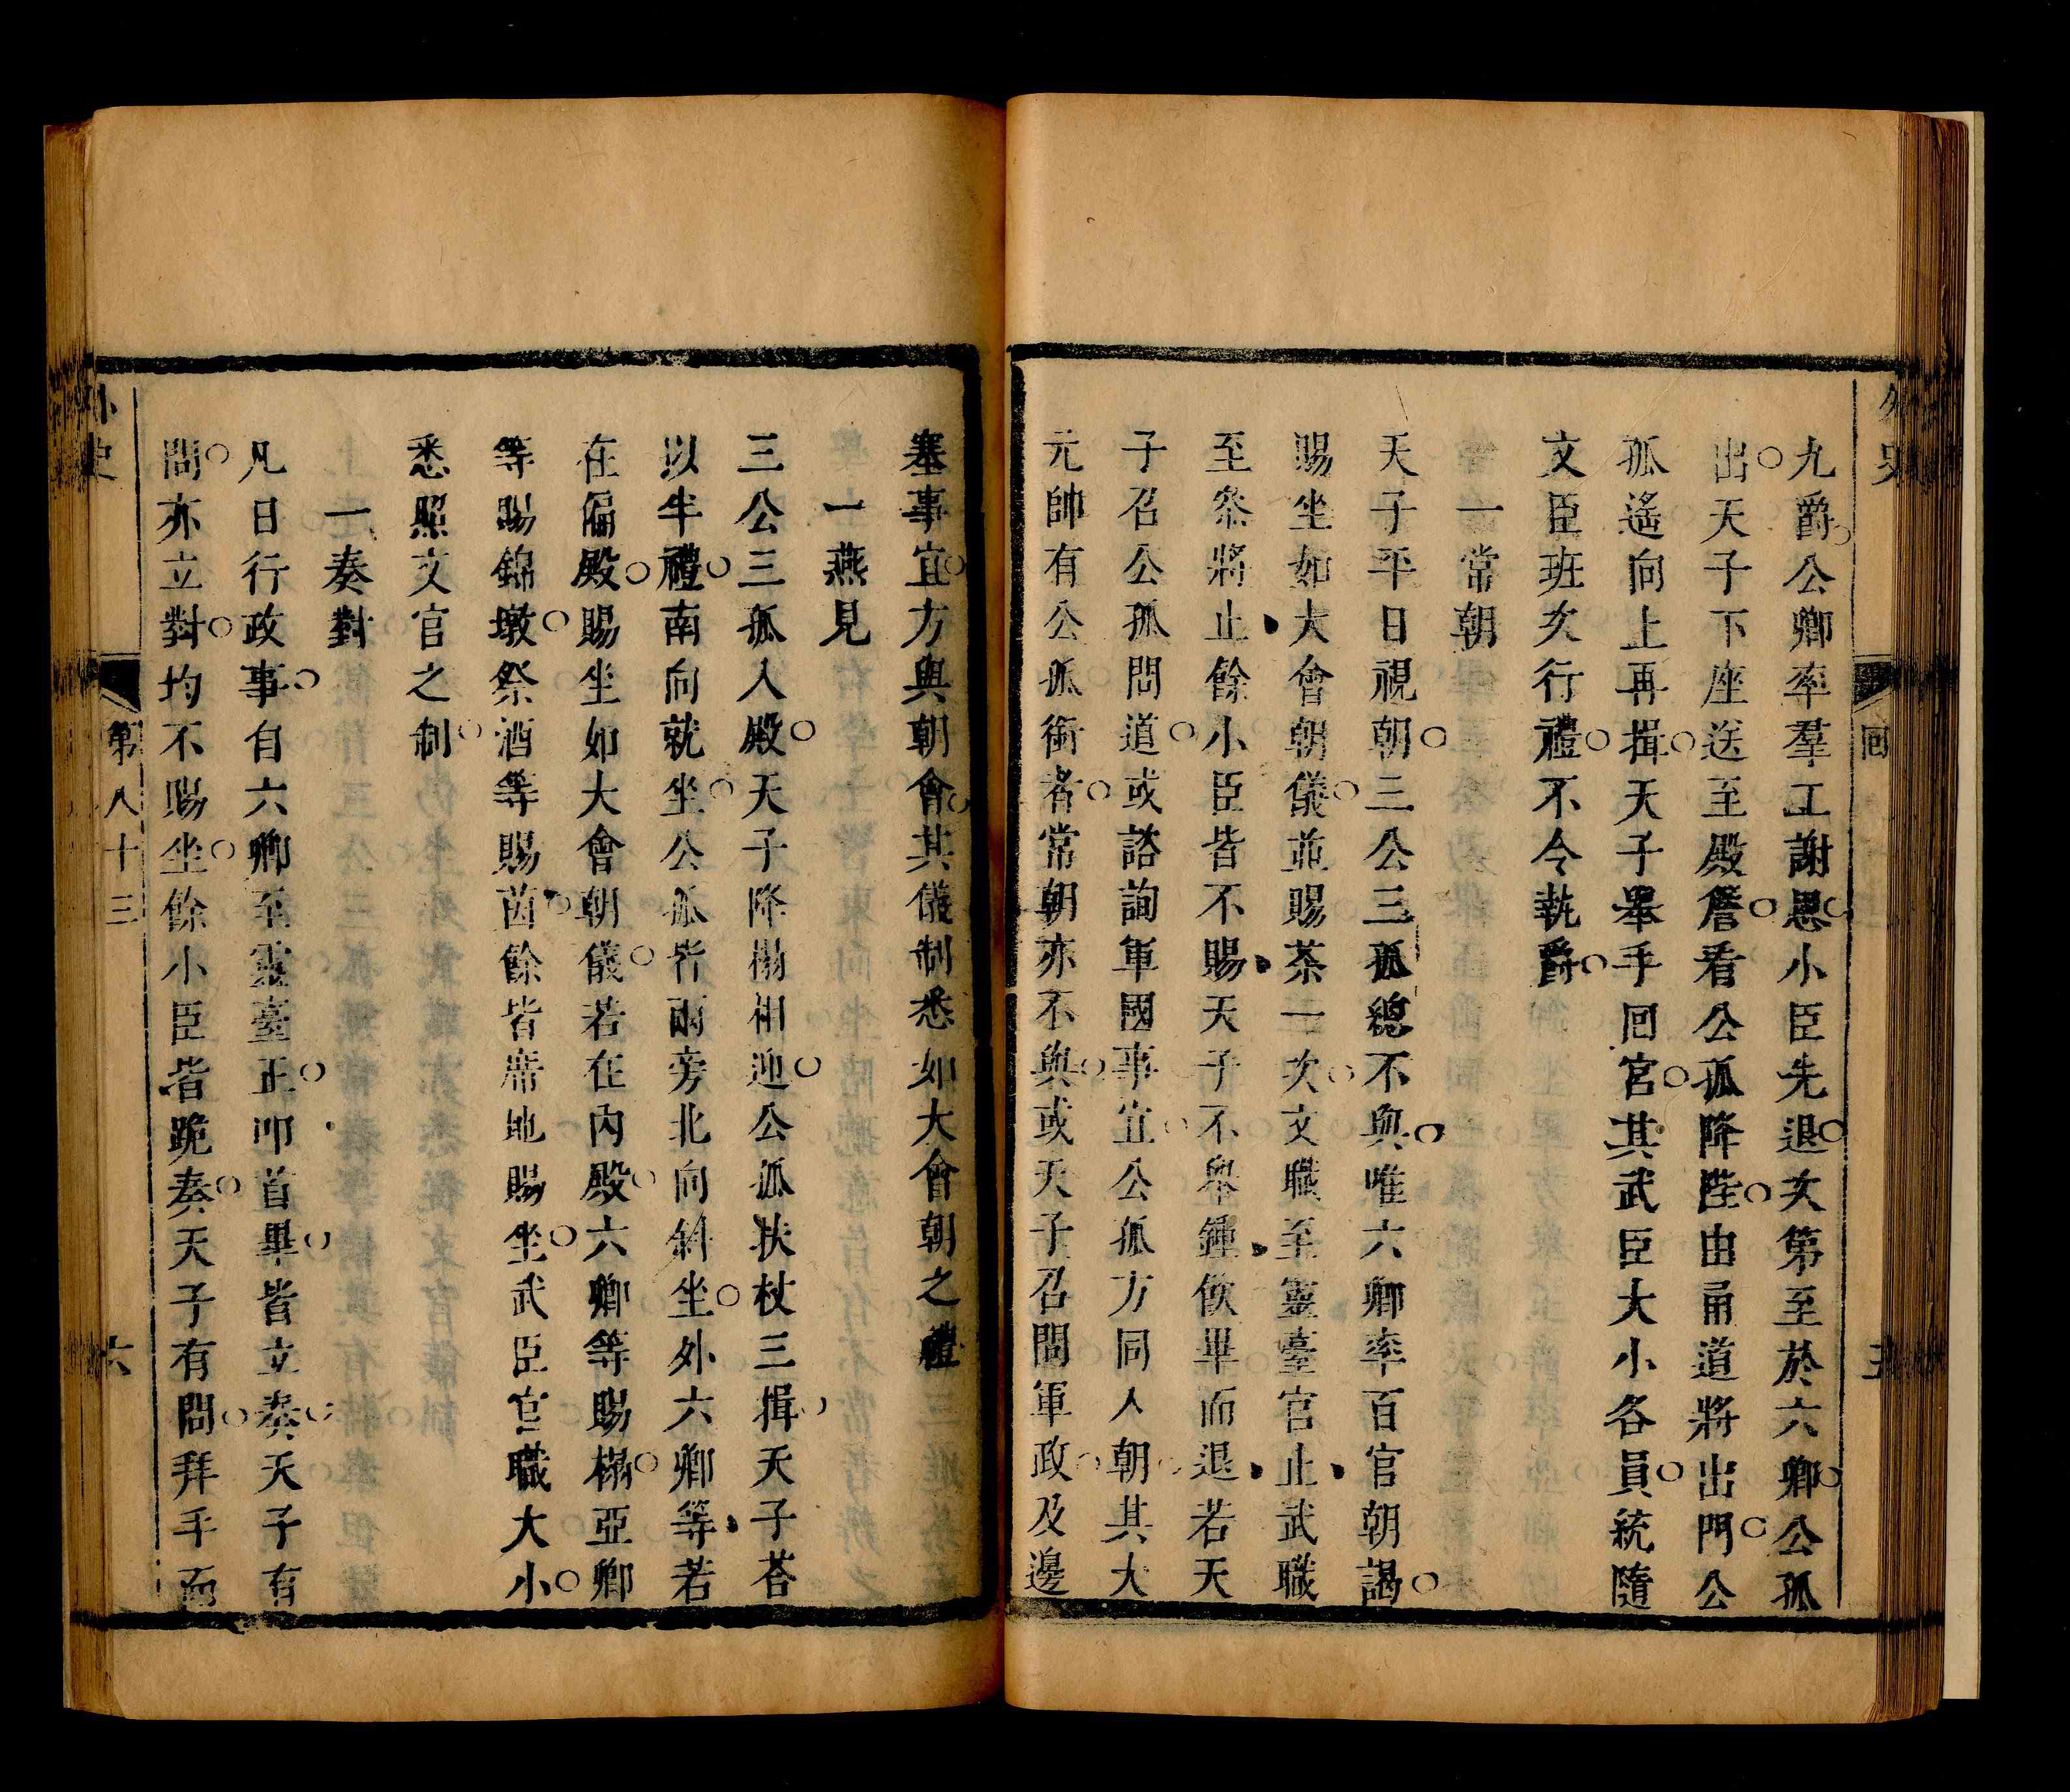 外史
回
五
九爵公卿率羣工謝恩小臣先退次第至於六卿公孤
出天子下座送至殿簷看公孤降陛由甬道將出門公
孤遙向上再揖天子舉手回宮其武臣大小各員統隨
文臣班次行禮不令執爵
一常朝
天子平日視朝三公三孤總不與唯六卿率百官朝謁
賜坐如大會朝儀並賜茶一次文職至靈臺官止武職
至叅將止餘小臣皆不賜天子不舉鍾飲畢而退若天
子召公孤問道或諮詢軍國事宜公孤方同入朝其大
元帥有公孤銜者常朝亦不與或天子召問軍政及邊
塞事宜方與朝會其儀制悉如大會朝之禮
一燕見
三公三孤入殿天子降榻相迎公孤扶杖三揖天子荅
以半禮南向就坐公孤皆兩旁北向斜坐外六卿等若
在偏殿賜坐如大會朝儀若在內殿六卿等賜榻亞卿
等賜錦墩祭酒等賜茵餘皆席地賜坐武臣官職大小
悉照文官之制
一奏對
凡日行政事自六卿至靈臺正叩首畢皆立奏天子有
問亦立對均不賜坐餘小臣皆跪奏天子有問拜手而
外史
第八十三
六